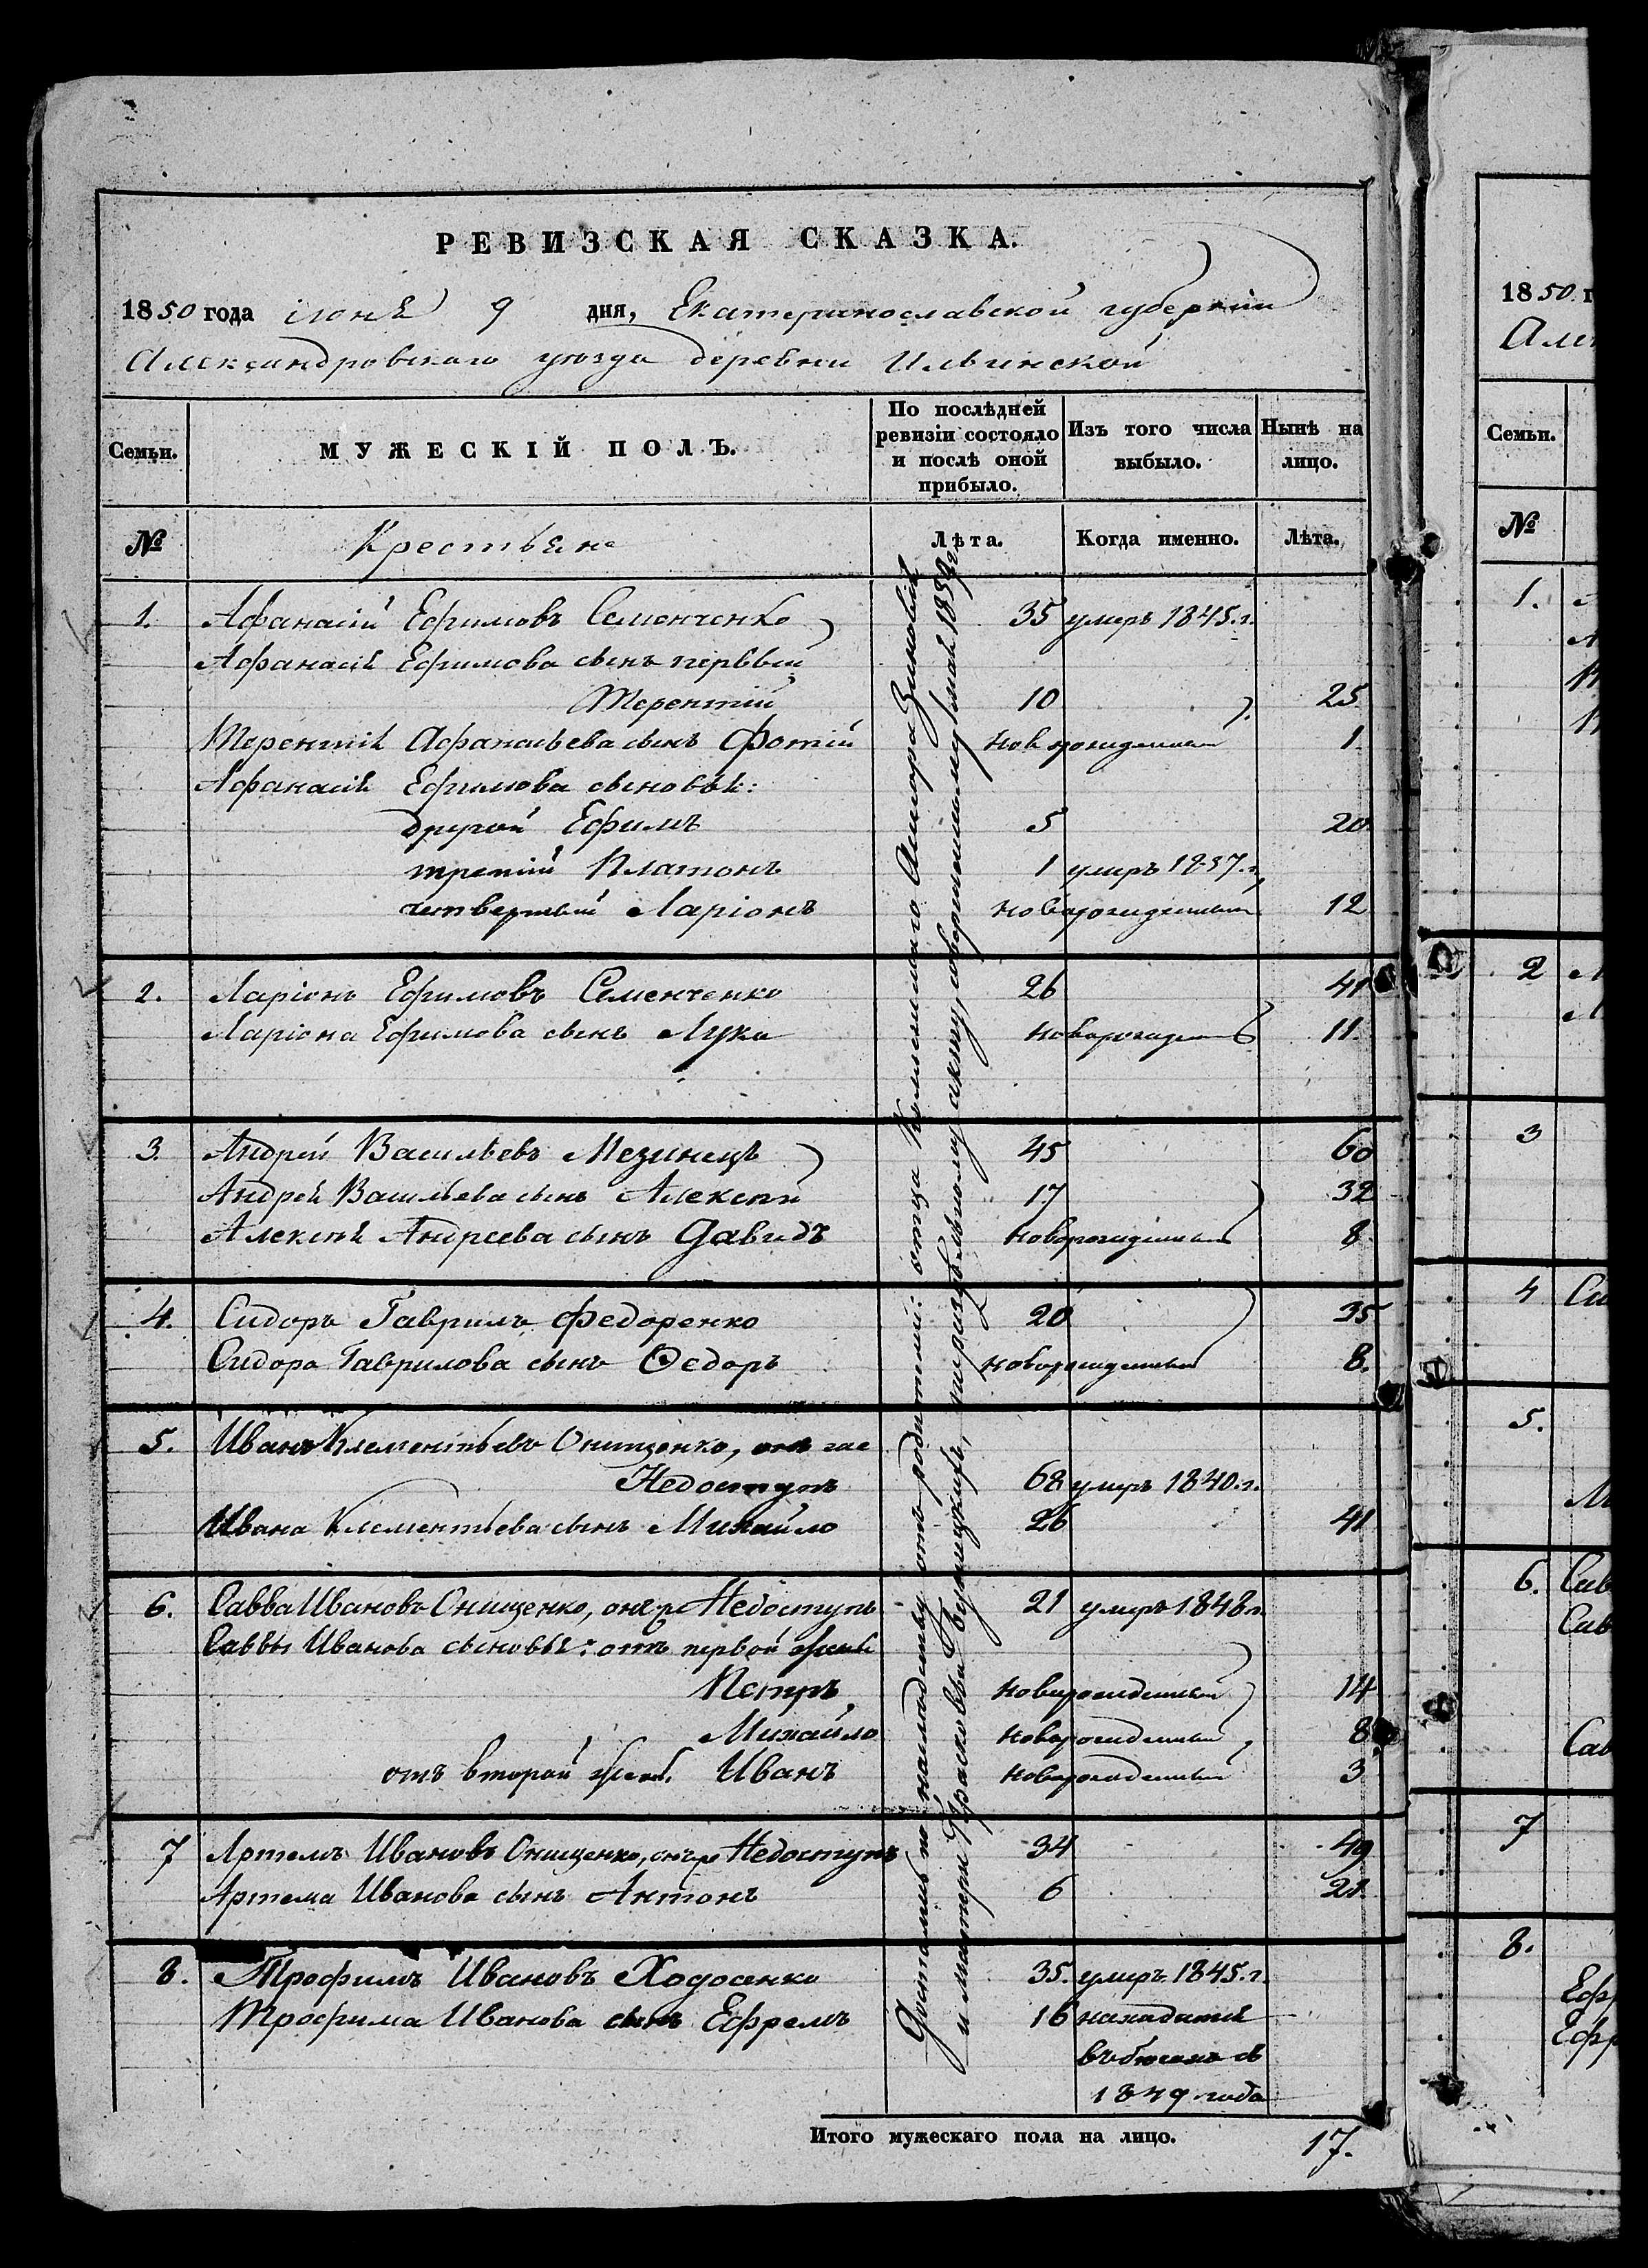 РЕВИЗСКАЯ СКАЗКА.
1850 года іюня 9 дня, Екатеринославской губерніи
Александровскаго уѣзда деревни Ильинской
Семьи.
МУЖЕСКІЙ ПОЛЪ.
По послѣдней ревизіи состояло и послѣ оной прибыло.
Изъ того числа выбыло.
Нынѣ на лицо.
№ Крестьяне Лѣта. Когда именно. Лѣта.
1. Афанасій Ефимовъ Семенченко 35 умеръ 1845.г.
Афанасія Ефимова сынъ первый
Терентій 10 25
Терентія Афанасьева сынъ Фотій новорожденный 1.
Афанасія Ефимова сыновья:
другой Ефимъ 5 20
третій Платонъ 1 умеръ 1837.г.
четвертый Ларіонъ новорожденный 12
2. Ларіонъ Ефимовъ Семенченко 26 41
Ларіона Ефимова сынъ Лука новорожден 11.
3. Андрей Васильевъ Мезинецъ 45 60
Андрея Васильева сынъ Алексѣй 17 32
Алексѣя Андреева сынъ Давидъ новорожденный 8
4. Сидоръ Гаврилъ Федоренко 20 35
Сидора Гаврилова сынъ Ѳедоръ новорожденный 8.
5. Иванъ Клементьевъ Онищенко, онъ же
Недоступъ 68 умеръ 1840.г.
Ивана Клементьева сынъ Михайло 26 41
6. Савва Ивановъ Онищенко, онъ же Недоступъ 21 умеръ 1848г.
Саввы Иванова сыновья: отъ первой жены
Петръ новорожденный 14
Михайло новорожденный 8
отъ второй жен. Иванъ новорожденный 3
7 Артемъ Ивановъ Онищенко, онъ же Недоступъ 34 49
Артема Иванова сынъ Антонъ 6 21.
8. Трофимъ Ивановъ Ходосенко 35. умеръ 1845.г.
Трофима Иванова сынъ Ефремъ 16 находится
въ бѣгахъ съ
1849 года
Итого мужескаго пола на лицо. 17.
Достались по наслѣдству отъ родителей: отца
и матери Прасковьи
1850 г
Алек
Семьи.
№
1.
2
3
4 Си
5.
6. Сав
Сав
Сав
7
8.
Ефр
Ефр